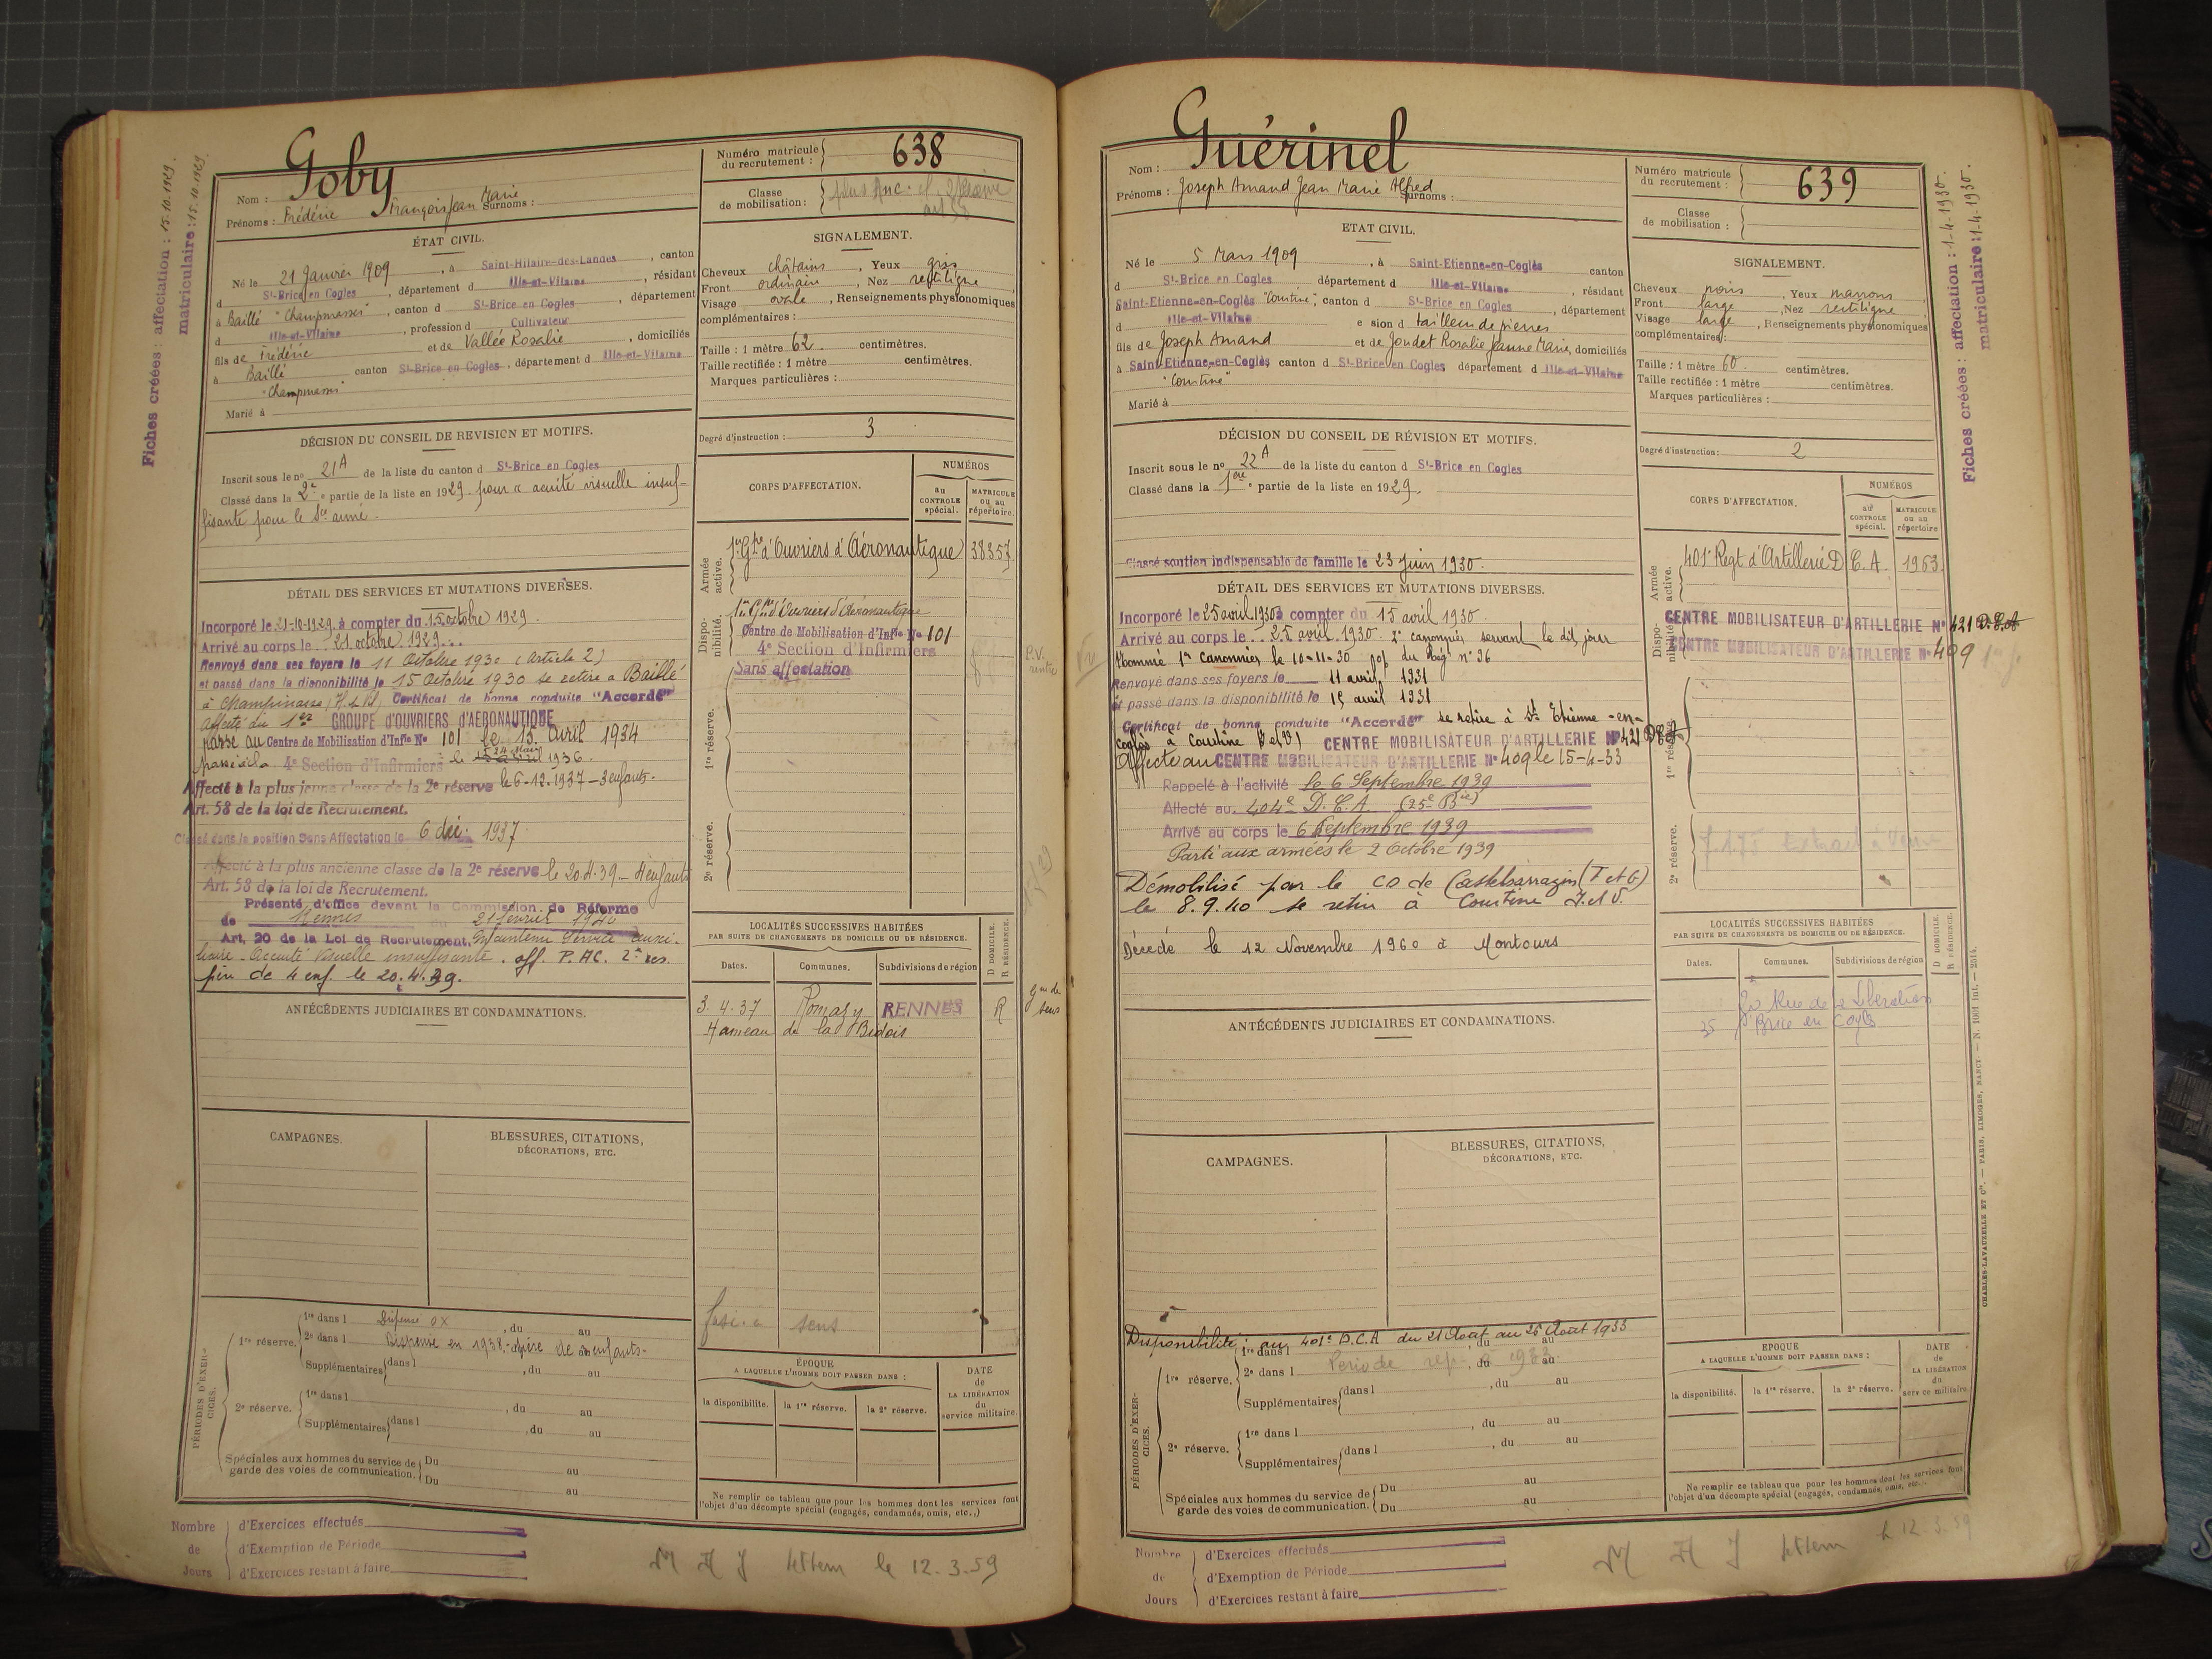 Fiches créées : affectation : 15.10.1929.
matriculaire : 15.10.1929
Nom : Goby
Prénoms : Frédéric François Jean Marie Surnoms :
Numéro matricule du recrutement : 638
Classe de mobilisation :
ÉTAT CIVIL.
Né le 21 Janvier 1909, à Saint-Hilaire-des-Landes, canton
d St-Brice en Cogles, département d Ille-et-Vilaine, résidant
à Baillé "Champmassi", canton d St-Brice en Cogles, département
d Ille-et-Vilaine, profession d Cultivateur
fils de Frédéric et de Vallée Rosalie, domiciliés
à Baillé canton St-Brice en Cogles, département d Ille-et-Vilaine
"Champmassi"
Marié à
SIGNALEMENT.
Cheveux châtains, Yeux gris
Front ordinaire, Nez rectiligne
Visage ovale, Renseignements physionomiques
complémentaires :
Taille : 1 mètre 62 centimètres.
Taille rectifiée : 1 mètre centimètres.
Marques particulières :
Degré d'instruction : 3
DÉCISION DU CONSEIL DE REVISION ET MOTIFS.
Inscrit sous le no 21A de la liste du canton d St-Brice en Cogles
Classé dans la 2e partie de la liste en 1929. pour "acuité visuelle insuf-
fisante pour le Sce armé.
CORPS D'AFFECTATION.
NUMÉROS
au CONTROLE spécial.
MATRICULE ou au répertoire.
Armée active.
1er Gpe d'Ouvriers d'Aéronautique 38357
Disponibilité.
1er Gpe d'Ouvriers d'Aéronautique
Centre de Mobilisation d'Infie No 101
4e Section d'Infirmiers
Sans affectation
1re réserve.
2e réserve.
DÉTAIL DES SERVICES ET MUTATIONS DIVERSES.
Incorporé le 21-10-1929 à compter du 15 octobre 1929.
Arrivé au corps le 21 octobre 1929.
Renvoyé dans ses foyers le 11 Octobre 1930 (Article 2)
et passé dans la disponibilité le 15 Octobre 1930 se retire à Baillé
à Champmassi (I & V) Certificat de bonne conduite "Accordé"
Affecté au 1er GROUPE D'OUVRIERS D'AERONAUTIQUE
passé au Centre de Mobilisation d'Infie No 101 le 15 avril 1934
passé à la 4e Section d'Infirmiers le 15 avril 1936.
Affecté à la plus jeune classe de la 2e réserve le 6-12.1937 - 3 enfants.
Art. 58 de la loi de Recrutement.
Classé dans la position Sans Affectation le 6 déc. 1937
Affecté à la plus ancienne classe de la 2e réserve le 20.4.39 - 4 enfants
Art. 58 de la loi de Recrutement.
Présenté d'office devant la Commission de Réforme
de Rennes du 21 février 1940
Art. 20 de la Loi de Recrutement. Maintenu Service auxi-
liaire - Acuité Visuelle insuffisante. aff. P. AC. 2e res.
père de 4 enf. le 20.4.39.
LOCALITÉS SUCCESSIVES HABITÉES
PAR SUITE DE CHANGEMENTS DE DOMICILE OU DE RÉSIDENCE.
D DOMICILE. R RÉSIDENCE.
Dates. Communes. Subdivisions de région
3.4.37 Romazy RENNES R
Hameau de la Bidois
ANTÉCÉDENTS JUDICIAIRES ET CONDAMNATIONS.
CAMPAGNES.
BLESSURES, CITATIONS, DÉCORATIONS, ETC.
PÉRIODES D'EXERCICES.
1re réserve. 1re dans l Dispense , du au
2e dans l Dispensé en 1938. père de enfants-
Supplémentaires dans l , du au
2e réserve. 1re dans l , du au
Supplémentaires dans l , du au
Spéciales aux hommes du service de garde des voies de communication. Du au
Du au
ÉPOQUE
A LAQUELLE L'HOMME DOIT PASSER DANS :
la disponibilité. la 1re réserve. la 2e réserve.
DATE de LA LIBÉRATION du service militaire.
Ne remplir ce tableau que pour les hommes dont les services font
l'objet d'un décompte spécial (engagés, condamnés, omis, etc.,)
Nombre de Jours
d'Exercices effectués
d'Exemption de Période
d'Exercices restant à faire
le 12.3.59
Nom : Guérinel
Prénoms : Joseph Amand Jean Marie Alfred Surnoms :
Numéro matricule du recrutement : 639
Classe de mobilisation :
Fiches créées : affectation : 1-4-1930.
matriculaire : 1-4-1930.
ETAT CIVIL.
Né le 5 Mars 1909, à Saint-Etienne-en-Coglès canton
d St-Brice en Cogles département d Ille-et-Vilaine, résidant
Saint-Etienne-en-Coglès "Courtine", canton d St-Brice en Cogles, département
d Ille-et-Vilaine e sion d tailleur de pierres
fils de Joseph Amand et de Joudet Rosalie Jeanne Marie, domiciliés
à Saint-Etienne-en-Coglès canton d St-Brice en Cogles département d Ille-et-Vilaine
"Courtine"
Marié à
SIGNALEMENT.
Cheveux noirs, Yeux marrons
Front large, Nez rectiligne
Visage large, Renseignements physionomiques
complémentaires :
Taille : 1 mètre 60 centimètres.
Taille rectifiée : 1 mètre centimètres.
Marques particulières :
Degré d'instruction : 2
DÉCISION DU CONSEIL DE RÉVISION ET MOTIFS.
Inscrit sous le no 22A de la liste du canton d St-Brice en Cogles
Classé dans la 1ère partie de la liste en 1929.
Classé soutien indispensable de famille le 23 juin 1930.
CORPS D'AFFECTATION.
NUMÉROS
au CONTROLE spécial.
MATRICULE ou au répertoire
Armée active.
401e Regt d'Artillerie D.C.A. 1963.
Disponibilité.
CENTRE MOBILISATEUR D'ARTILLERIE No 421 D.C.A
CENTRE MOBILISATEUR D'ARTILLERIE No 409
1re réserve.
2e réserve.
DÉTAIL DES SERVICES ET MUTATIONS DIVERSES.
Incorporé le 25 avril 1930 à compter du 15 avril 1930.
Arrivé au corps le 25 avril 1930. 2e canonnier servant le dit jour
Nommé 1er Canonnier le 10-11-30 du Rég. n° 36
Renvoyé dans ses foyers le 11 avril 1931
et passé dans la disponibilité le 15 avril 1931
Certificat de bonne conduite "Accordé" se retire à St Etienne-en-
Coglès à Courtine (I et V) CENTRE MOBILISATEUR D'ARTILLERIE No 421 DCA
Affecté au CENTRE MOBILISATEUR D'ARTILLERIE No 409 le 15-4-33
Rappelé à l'activité le 6 Septembre 1939
Affecté au 404e D.C.A (25e Bie)
Arrivé au corps le 6 Septembre 1939
Parti aux armées le 2 Octobre 1939
Démobilisé par le CD de Castelsarrazin (T et G)
le 8.9.40 se retire à Courtine I. et V.
Décédé le 12 Novembre 1960 à Montours
LOCALITÉS SUCCESSIVES HABITÉES
PAR SUITE DE CHANGEMENTS DE DOMICILE OU DE RÉSIDENCE.
D DOMICILE. R RÉSIDENCE.
Dates. Communes. Subdivisions de région
Rue de la Libération
35 St Brice en Cogles
ANTÉCÉDENTS JUDICIAIRES ET CONDAMNATIONS.
CAMPAGNES.
BLESSURES, CITATIONS, DÉCORATIONS, ETC.
PÉRIODES D'EXERCICES.
Disponibilité : au 401e D.C.A du 21 Août au 26 Août 1933
1re réserve. 1re dans l , du au
2e dans l Période , du au
Supplémentaires dans l , du au
2e réserve. 1re dans l , du au
Supplémentaires dans l , du au
Spéciales aux hommes du service de garde des voies de communication. Du au
Du au
EPOQUE
A LAQUELLE L'HOMME DOIT PASSER DANS :
la disponibilité. la 1re réserve. la 2e réserve.
DATE de LA LIBÉRATION du service militaire.
Ne remplir ce tableau que pour les hommes dont les services font
l'objet d'un décompte spécial (engagés, condamnés, omis, etc..
CHARLES-LAVAUZELLE ET Cie. — PARIS, LIMOGES, NANCY. — N. 1001 Int. — 2514.
Nombre de Jours
d'Exercices effectués
d'Exemption de Période
d'Exercices restant à faire
le 12.3.59